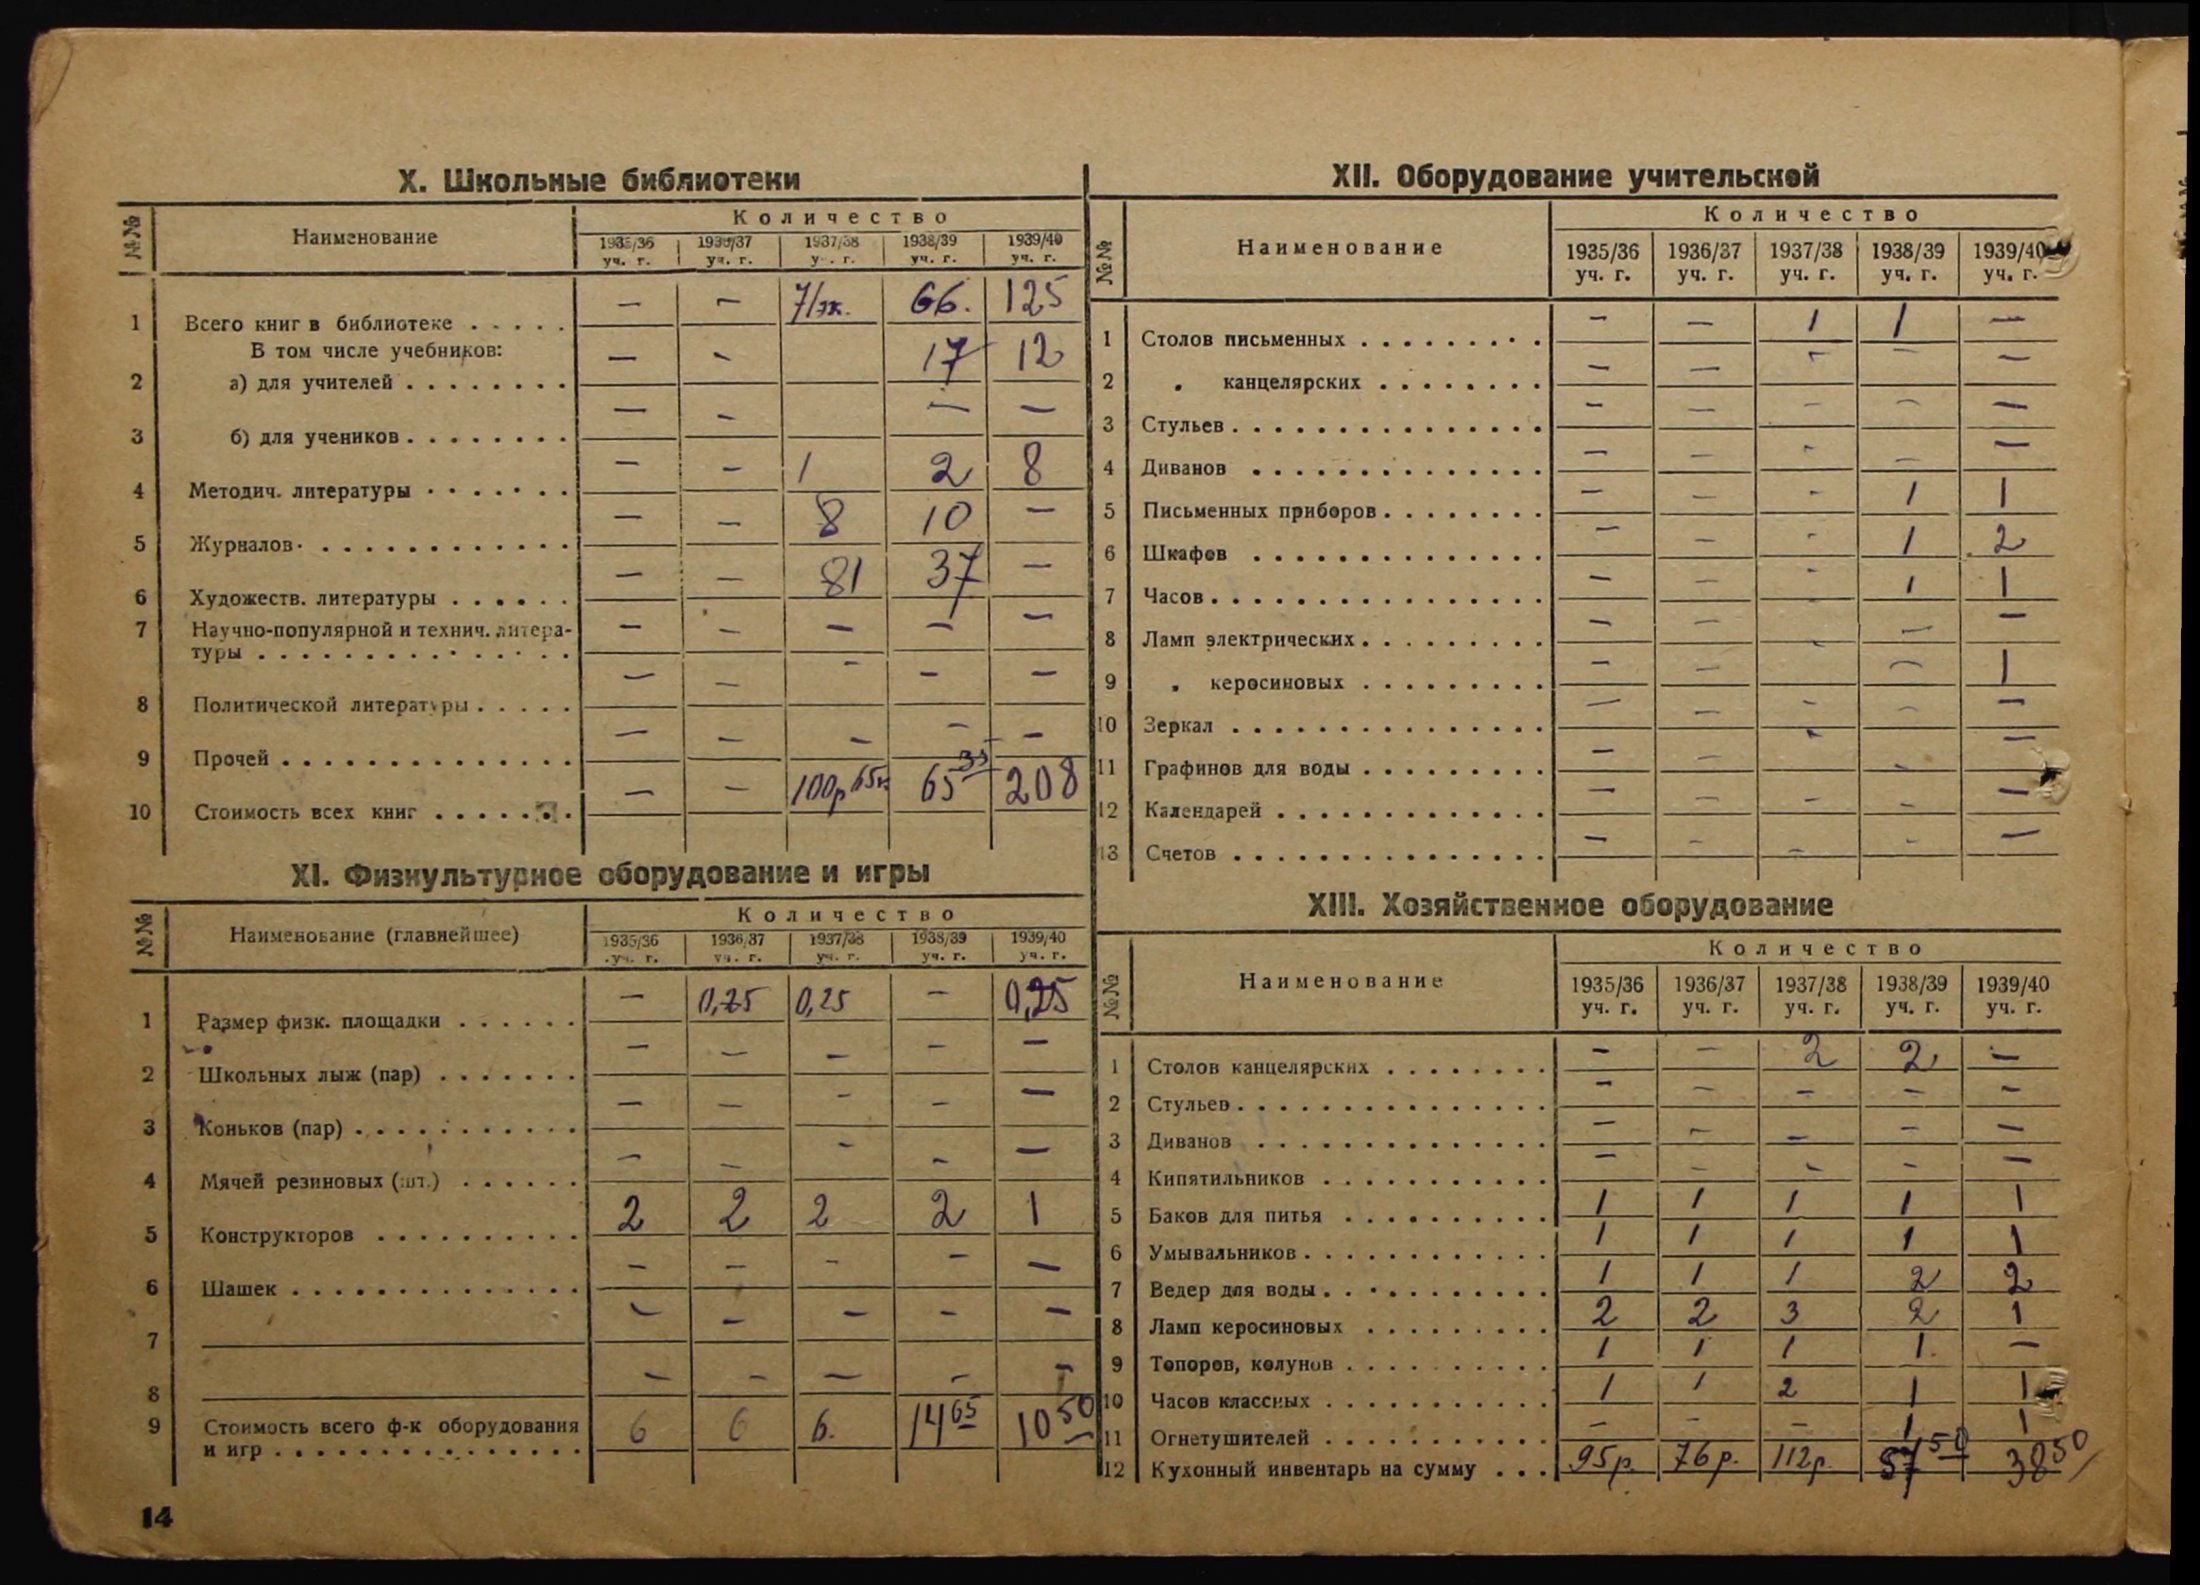 X. Школьные библиотеки
№№ Наименование Количество
1935/36 уч. г. 1936/37 уч. г. 1937/38 уч. г. 1938/39 уч. г. 1939/40 уч. г.
1 Всего книг в библиотеке . . . . . — — 66. 125
В том числе учебников:
2 а) для учителей . . . . . . . . — — 17 12
3 б) для учеников . . . . . . . . — — — —
4 Методич. литературы . . . . . . . — — 1 2 8
5 Журналов . . . . . . . . . . . . — — 8 10 —
6 Художеств. литературы . . . . . . — — 81 37 —
7 Научно-популярной и технич. литера-
туры . . . . . . . . . . . . . . . — — — — —
8 Политической литературы . . . . . — — — — —
9 Прочей . . . . . . . . . . . . . . — — — — —
10 Стоимость всех книг . . . . . . . — — 100р 65к 65 33 208
XI. Физкультурное оборудование и игры
№№ Наименование (главнейшее) Количество
1935/36 уч. г. 1936/37 уч. г. 1937/38 уч. г. 1938/39 уч. г. 1939/40 уч. г.
1 Размер физк. площадки . . . . . . — 0,25 0,25 — 0,25
2 Школьных лыж (пар) . . . . . . . — — — — —
3 Коньков (пар) . . . . . . . . . . . — — — — —
4 Мячей резиновых (шт.) . . . . . . — — — — —
5 Конструкторов . . . . . . . . . . 2 2 2 2 1
6 Шашек . . . . . . . . . . . . . . — — — — —
7 — — — — —
8 — — — — —
9 Стоимость всего ф-к оборудования
и игр . . . . . . . . . . . . . . . 6 6 6. 14 65 10 50
14
XII. Оборудование учительской
№№ Наименование Количество
1935/36 уч. г. 1936/37 уч. г. 1937/38 уч. г. 1938/39 уч. г. 1939/40 уч. г.
1 Столов письменных . . . . . . . . . — — 1 1 —
2 „ канцелярских . . . . . . . . — — — — —
3 Стульев . . . . . . . . . . . . . . . — — — — —
4 Диванов . . . . . . . . . . . . . . — — — — —
5 Письменных приборов . . . . . . . . — — — 1 1
6 Шкафов . . . . . . . . . . . . . . — — — 1 2
7 Часов . . . . . . . . . . . . . . . . — — — 1 1
8 Ламп электрических . . . . . . . . . — — — — —
9 „ керосиновых . . . . . . . . . — — — 1
10 Зеркал . . . . . . . . . . . . . . . — — — — —
11 Графинов для воды . . . . . . . . . — — — — —
12 Календарей . . . . . . . . . . . . . — — — — —
13 Счетов . . . . . . . . . . . . . . . — — — — —
XIII. Хозяйственное оборудование
№№ Наименование Количество
1935/36 уч. г. 1936/37 уч. г. 1937/38 уч. г. 1938/39 уч. г. 1939/40 уч. г.
1 Столов канцелярских . . . . . . . . — — 2 2 —
2 Стульев . . . . . . . . . . . . . . . — — — — —
3 Диванов . . . . . . . . . . . . . . — — — — —
4 Кипятильников . . . . . . . . . . . — — — — —
5 Баков для питья . . . . . . . . . . 1 1 1 1 1
6 Умывальников . . . . . . . . . . . . 1 1 1 1 1
7 Ведер для воды . . . . . . . . . . . 1 1 1 2 2
8 Ламп керосиновых . . . . . . . . . 2 2 3 2 1
9 Топоров, колунов . . . . . . . . . . 1 1 1 1. —
10 Часов классных . . . . . . . . . . . 1 1 2 1 1
11 Огнетушителей . . . . . . . . . . . — — — 1 1
12 Кухонный инвентарь на сумму . . . 95р. 76р. 112р. 57 50 38 50